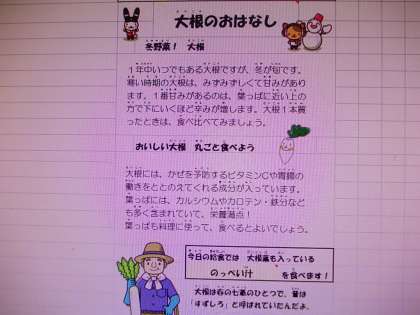 大根のおはなし
冬野菜！　大根
１年中いつでもある大根ですが、冬が旬です。
寒い時期の大根は、みずみずしくて甘みがあり
ます。１番甘みがあるのは、葉っぱに近い上の
方で下にいくほど辛みが増します。大根１本買
ったときは、食べ比べてみましょう。
おいしい大根　丸ごと食べよう
大根には、かぜを予防するビタミンCや胃腸の
働きをととのえてくれる成分が入っています。
葉っぱには、カルシウムやカロテン・鉄分など
も多く含まれていて、栄養満点！
葉っぱも料理に使って、食べるとよいでしょう。
今日の給食では　大根葉も入っている
のっぺい汁　　を食べます！
大根は春の七草のひとつで、昔は
「すずしろ」と呼ばれていたんだよ。